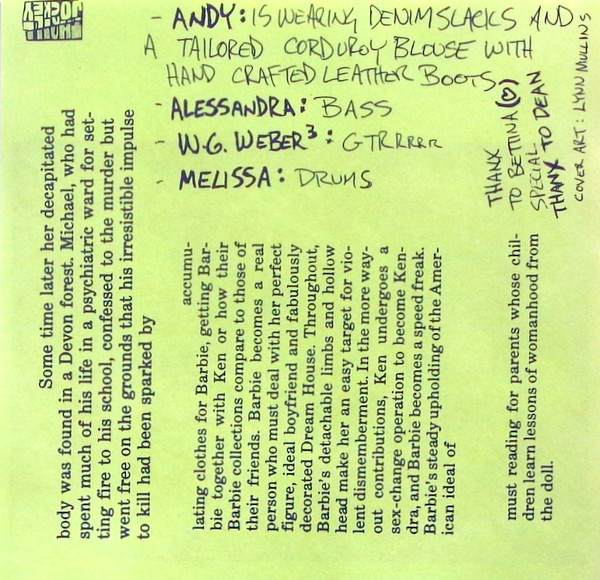 - ANDY: IS WEARING DENIM SLACKS AND
A TAILORED CORDUROY BLOUSE WITH
HAND CRAFTED LEATHER BOOTS
- ALESSANDRA: BASS
- W.G. WEBER³: GTRRRRR
- MELISSA: DRUMS
THANX
TO BETTINA (♡)
SPECIAL
THANX TO DEAN
COVER ART: LYNN MULLINS
Some time later her decapitated
body was found in a Devon forest. Michael, who had
spent much of his life in a psychiatric ward for set-
ting fire to his school, confessed to the murder but
went free on the grounds that his irresistible impulse
to kill had been sparked by
accumu-
lating clothes for Barbie, getting Bar-
bie together with Ken or how their
Barbie collections compare to those of
their friends. Barbie becomes a real
person who must deal with her perfect
figure, ideal boyfriend and fabulously
decorated Dream House. Throughout,
Barbie's detachable limbs and hollow
head make her an easy target for vio-
lent dismemberment. In the more way-
out contributions, Ken undergoes a
sex-change operation to become Ken-
dra, and Barbie becomes a speed freak.
Barbie's steady upholding of the Amer-
ican ideal of
must reading for parents whose chil-
dren learn lessons of womanhood from
the doll.